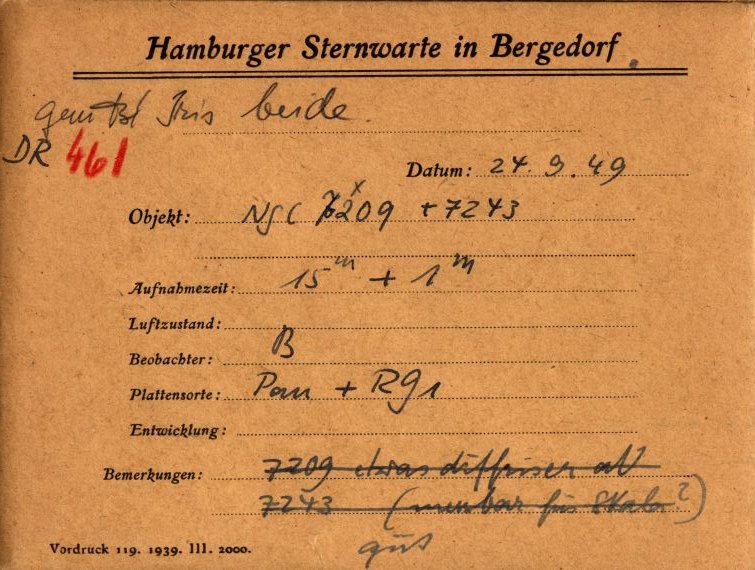 Hamburger Sternwarte in Bergedorf
Iris beide.
DR 461
Datum: 24.9.49
Objekt: NGC 7209 + 7243
x
Aufnahmezeit: 15 m + 1 m
Luftzustand:
Beobachter: B
Plattensorte: Pan + RG1
Entwicklung:
Bemerkungen: 7209 etwas diffuser als
7243 (messbar für Skala?)
gut
Vordruck 119. 1939. III. 2000.